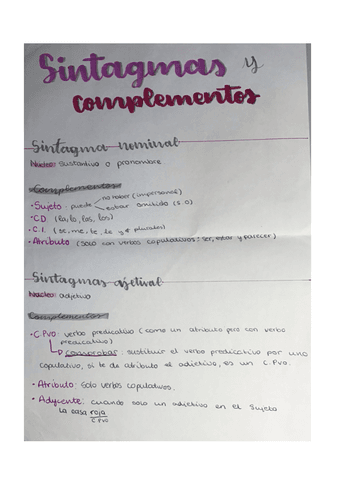 Sintagmas y
complementos
Sintagma nominal
Núcleo: sustantivo o pronombre.
Complementos
no haber (impersonal)
• Sujeto: puede
estar omitido (S.O)
• CD (la, lo, las, los)
• C.I. (se, me, te, le y plurales)
• Atributo (solo con verbos copulativos: ser, estar y parecer)
Sintagmas ajetival
Núcleo: adjetivo
Complementos
• C.Pvo: verbo predicativo (como un atributo pero con verbo
predicativo)
comprobar: sustituir el verbo predicativo por uno
copulativo, si te da atributo el adjetivo, es un C.Pvo.
• Atributo: Solo verbos copulativos.
• Adycente: cuando solo un adjetivo en el Sujeto
La casa roja
C.Pvo